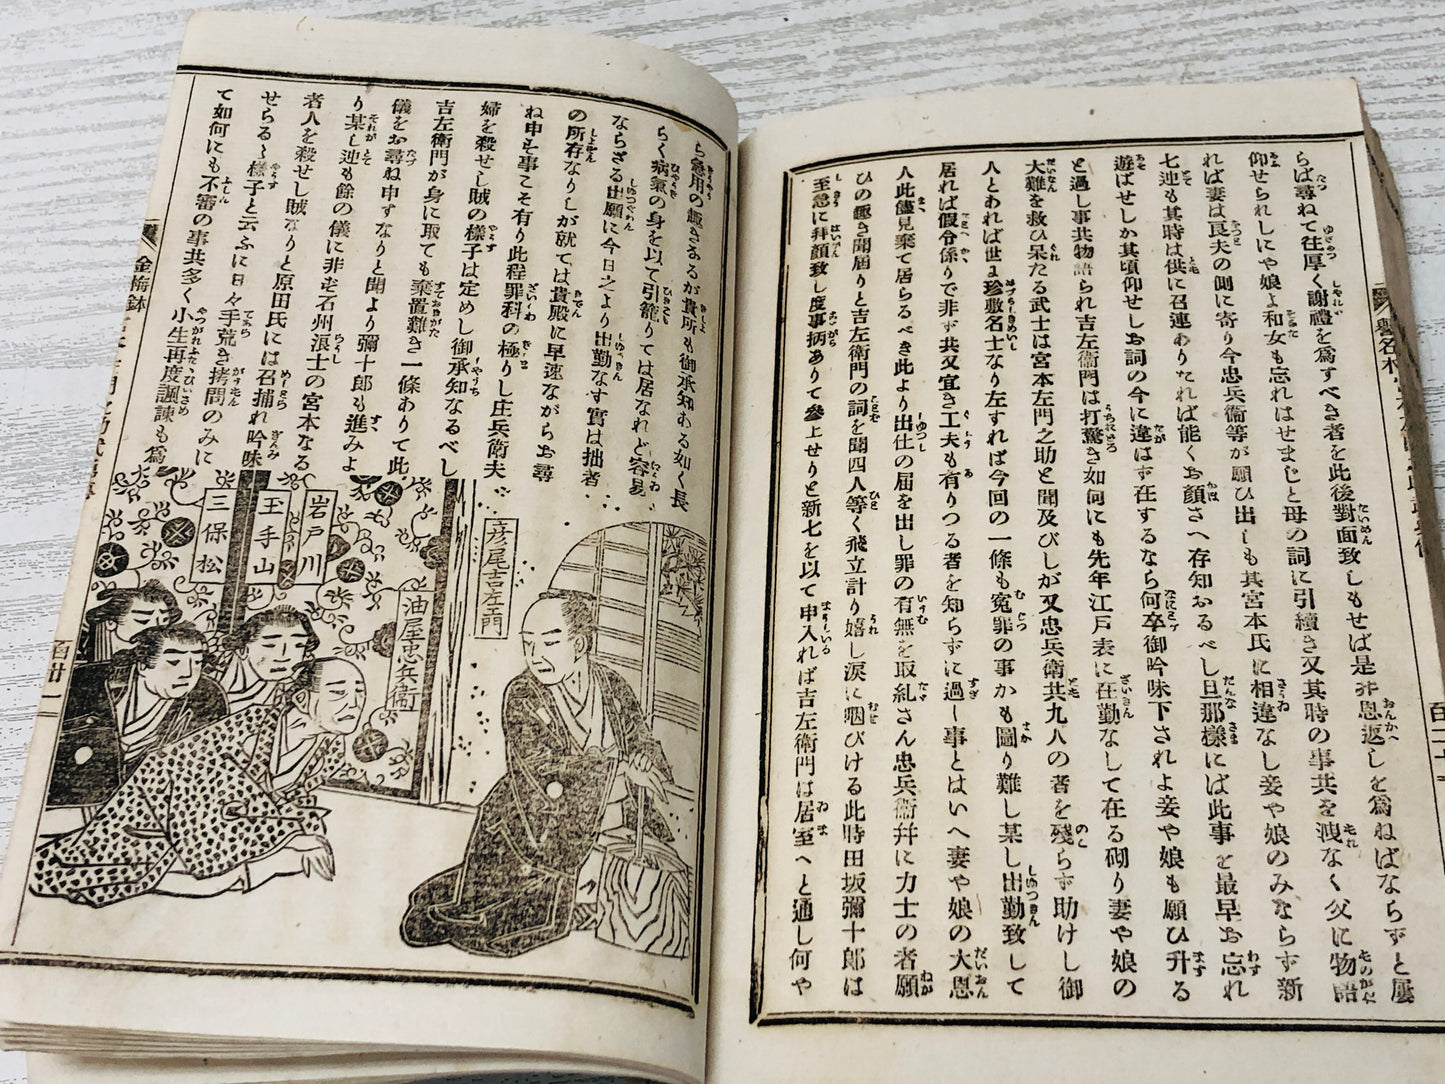 らば尋ねて往厚く謝禮を為すべき者を此後對面致しもせば是非恩返しを為ねばならずと屡
仰せられしにや娘よ和女も忘れはせまじと母の詞に引續き又其時の事共を洩なく父に物語
れば妻は良夫の側に寄り今忠兵衞等が願ひ出しも其宮本氏に相違なし妾や娘のみならず新
七迚も其時は供に召連ありたれば能くお顔さへ存知おるべし旦那様にば此事を最早お忘れ
遊ばせしか其頃仰せしお詞の今に違はず在するなら何卒御吟味下されよ妾や娘も願ひ升る
と過し事共物語られ吉左衞門は打驚き如何にも先年江戸表に在勤なして在る砌り妻や娘の
大難を救ひ呆たる武士は宮本左門之助と聞及びしが又忠兵衞共九人の者を殘らず助けし御
人とあれば世に珍敷名士なり左すれば今回の一條も冤罪の事かも圖り難し某し出勤致して
居れば假令係りで非ず共又宜き工夫も有りつる者を知らずに過し事とはいへ妻や娘の大恩
人此儘見棄て居らるべき此より出仕の屆を出し罪の有無を取糺さん忠兵衞幷に力士の者願
ひの趣き聞屆りと吉左衞門の詞を聞四人等く飛立計り嬉し涙に咽びける此時田坂彌十郎は
至急に拜顔致し度事柄ありて參上せりと新七を以て申入れば吉左衞門は居室へと通し何や
ら急用の趣きあるが貴所も御承知ある如く長
らく病氣の身を以て引籠りては居なれど容易
ならざる出願に今日之より出勤なす實は拙者
の所存なりしが就ては貴殿に早速ながらお尋
ね申を事こそ有り此程罪科の極りし庄兵衛夫
婦を殺せし賊の様子は定めし御承知なるべし
吉左衛門が身に取ても棄置難き一條ありて此
儀をお尋ね申すなりと聞より彌十郎も進みよ
り某し迚も餘の儀に非ず石州浪士の宮本なる
者人を殺せし賊なりと原田氏には召捕れ吟味
せらるゝ様子と云ふに日々手荒き拷問のみに
て如何にも不審の事共多く小生再度諷諫も為
彦尾吉左衛門
油屋忠兵衞
岩戸川
玉手山
三保松
金梅鉢
百廿一